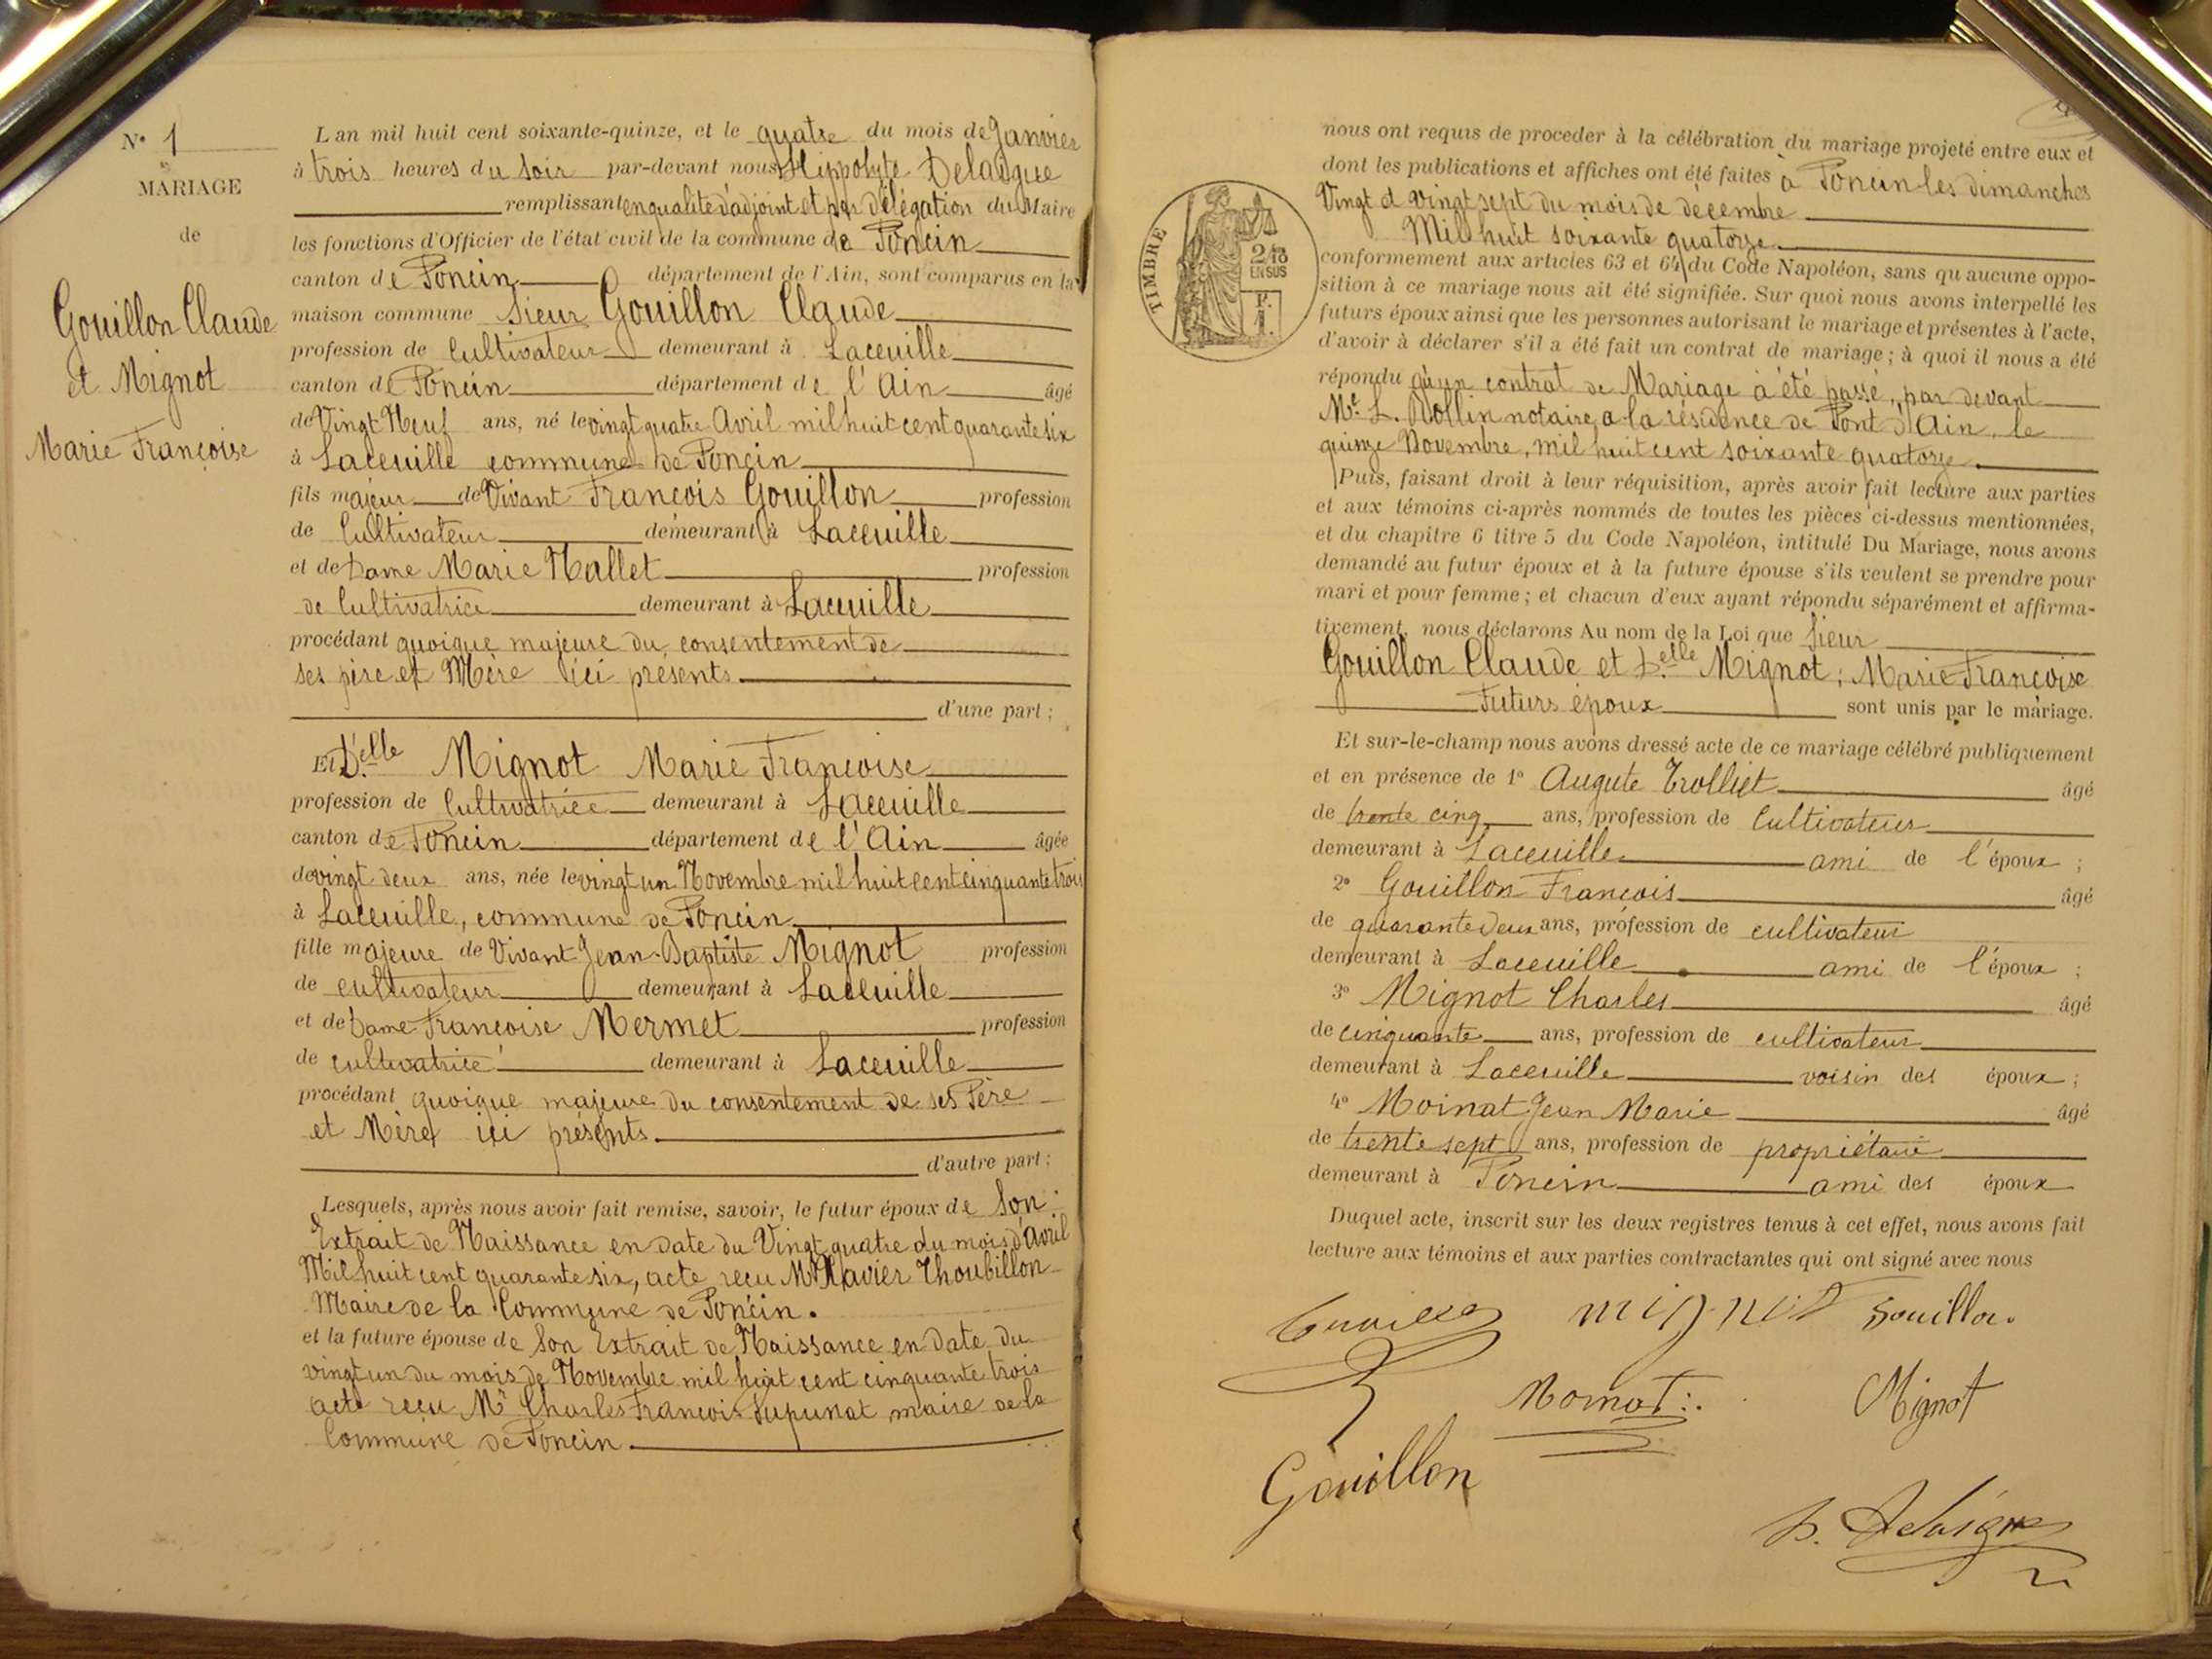 N° 1
MARIAGE
de
Gouillon Claude
et Mignot
Marie Françoise
L'an mil huit cent soixante-quinze, et le quatre du mois de Janvier
à trois heures du soir par-devant nous Hippolyte Delaigue
remplissant en qualité d'adjoint et par délégation du Maire
les fonctions d'Officier de l'état civil de la commune de Poncin
canton de Poncin département de l'Ain, sont comparus en la
maison commune Sieur Gouillon Claude
profession de Cultivateur demeurant à Laceuille
canton de Poncin département de l'Ain âgé
de Vingt Neuf ans, né le vingt quatre Avril mil huit cent quarante six
à Laceuille commune de Poncin
fils majeur de Vivant François Gouillon profession
de Cultivateur demeurant à Laceuille
et de Dame Marie Mallet profession
de Cultivatrice demeurant à Laceuille
procédant quoique majeure du consentement de
ses père et Mère ici présents
d'une part ;
Et D.elle Mignot Marie Françoise
profession de Cultivatrice demeurant à Laceuille
canton de Poncin département de l'Ain âgée
de vingt deux ans, née le vingt un Novembre mil huit cent cinquante trois
à Laceuille, commune de Poncin
fille majeure de Vivant Jean-Baptiste Mignot profession
de cultivateur demeurant à Laceuille
et de Dame Françoise Mermet profession
de cultivatrice demeurant à Laceuille
procédant quoique majeure du consentement de ses Père
et Mère ici présents
d'autre part ;
Lesquels, après nous avoir fait remise, savoir, le futur époux de Son
Extrait de Naissance en date du Vingt quatre du mois d'Avril
Mil huit cent quarante six, acte reçu Mr Xavier Thoubillon
Maire de la Commune de Poncin.
et la future épouse de Son Extrait de Naissance en date du
vingt un du mois de Novembre mil huit cent cinquante trois
acte reçu Mr Charles François Dupunat maire de la
Commune de Poncin.
nous ont requis de proceder à la célébration du mariage projeté entre eux et
dont les publications et affiches ont été faites à Poncin les dimanches
Vingt et vingt sept du mois de décembre
Mil huit soixante quatorze
conformement aux articles 63 et 64 du Code Napoléon, sans qu'aucune oppo-
sition à ce mariage nous ait été signifiée. Sur quoi nous avons interpellé les
futurs époux ainsi que les personnes autorisant le mariage et présentes à l'acte,
d'avoir à déclarer s'il a été fait un contrat de mariage ; à quoi il nous a été
répondu qu'un contrat de Mariage à été passé, par devant
Me L. Rollin notaire a la résidence de Pont d'Ain, le
quinze Novembre, mil huit cent soixante quatorze
Puis, faisant droit à leur réquisition, après avoir fait lecture aux parties
et aux témoins ci-après nommés de toutes les pièces ci-dessus mentionnées,
et du chapitre 6 titre 5 du Code Napoléon, intitulé Du Mariage, nous avons
demandé au futur époux et à la future épouse s'ils veulent se prendre pour
mari et pour femme ; et chacun d'eux ayant répondu séparément et affirma-
tivement, nous déclarons Au nom de la Loi que Sieur
Gouillon Claude et D.elle Mignot, Marie Françoise
Futurs époux sont unis par le mariage.
Et sur-le-champ nous avons dressé acte de ce mariage célébré publiquement
et en présence de 1° Augute Trolliet âgé
de trente cinq ans, profession de Cultivateur
demeurant à Laceuille ami de l'époux ;
2° Gouillon François âgé
de quarante deux ans, profession de cultivateur
demeurant à Laceuille ami de l'époux ;
3° Mignot Charles âgé
de cinquante ans, profession de cultivateur
demeurant à Laceuille voisin des époux ;
4° Moinat Jean Marie âgé
de trente sept ans, profession de propriétaire
demeurant à Poncin ami des époux
Duquel acte, inscrit sur les deux registres tenus à cet effet, nous avons fait
lecture aux témoins et aux parties contractantes qui ont signé avec nous
mignot Gouillon
Moinat Mignot
Gouillon
H. Delaigue
TIMBRE
2/10
EN SUS
F.
1.